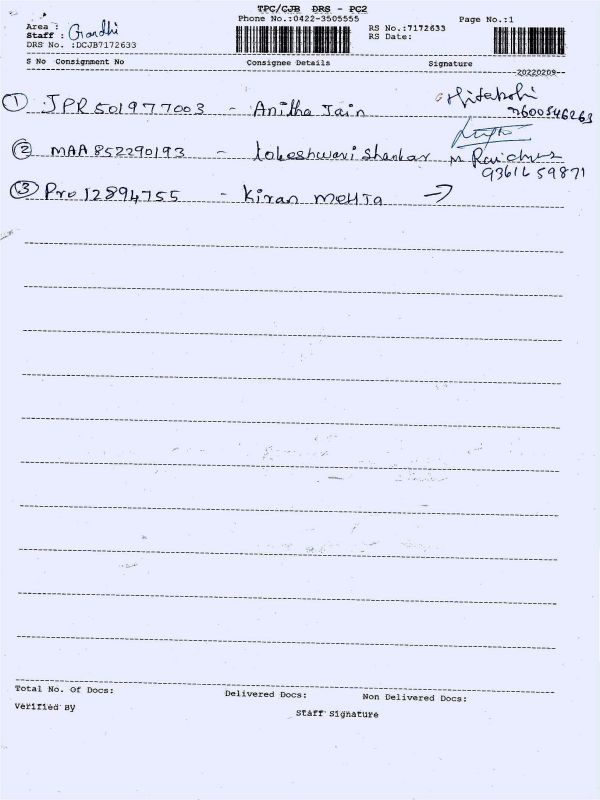 TPC/CJB DRS - PC2
Phone No.:0422-3505555
Page No.:1
Area :
RS No.:7172633
Staff : Gandhi
RS Date:
DRS No. :DCJB7172633
S No Consignment No Consignee Details Signature
20220209--
① JPR 501977003 - Anitha Jain
7600546263
② MAA 852290193 - Lokeshwari Shankar
9361659871
③ Pro 12894755 - Kiran MEHTA →
Total No. Of Docs: Delivered Docs: Non Delivered Docs:
Verified By
Staff Signature